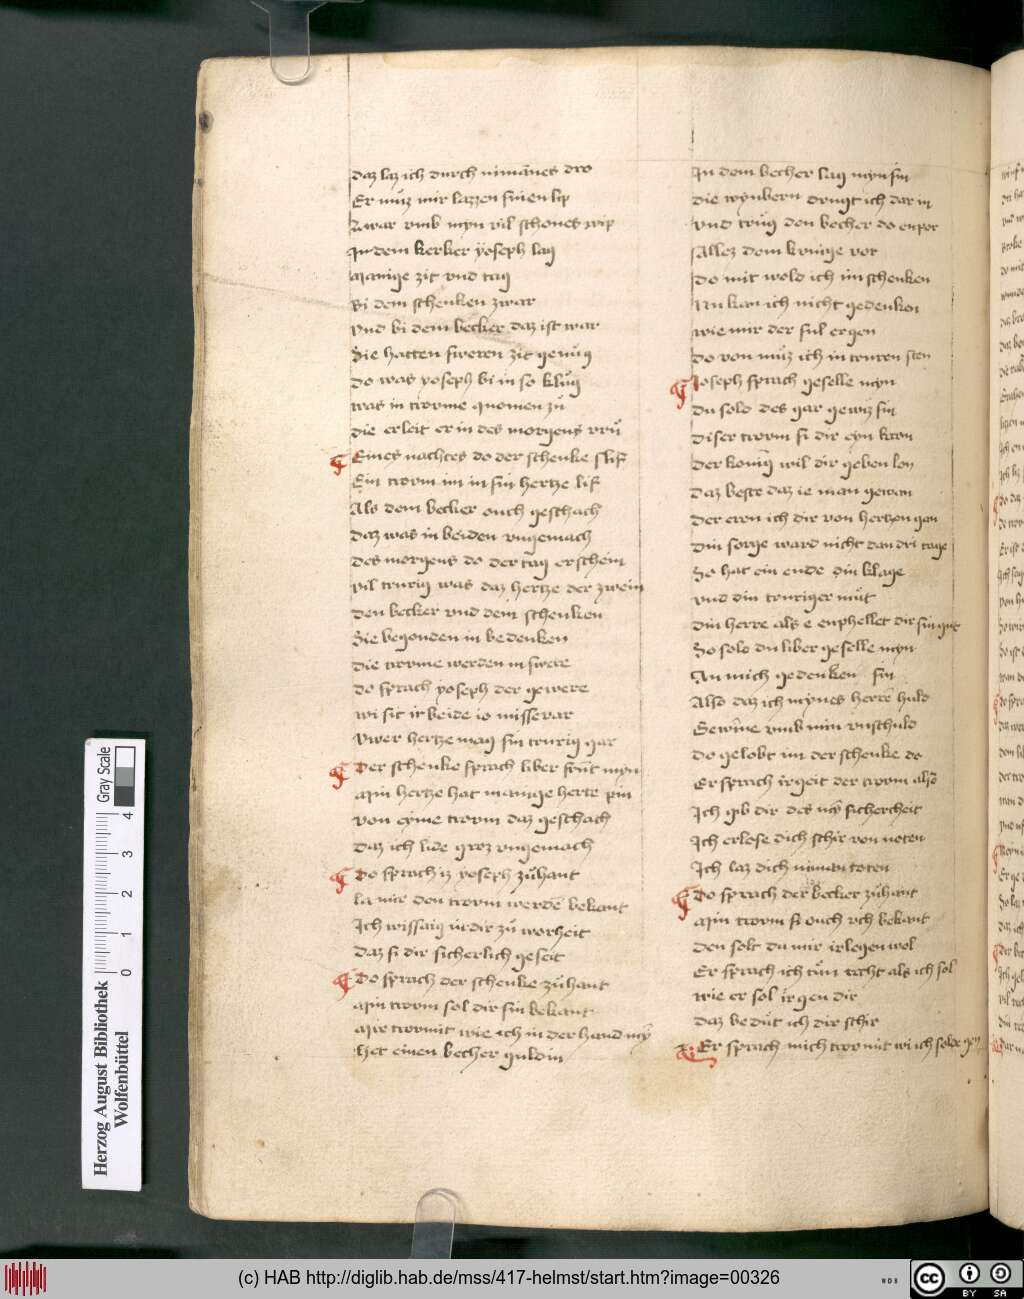 daz laz ich durch nimānes dro
Er můz mir lazzen sinen lip
Zwar vmb myn vil schones wip
In dem kerker yoseph lag
Manige zit vnd tag
Bi dem schenken zwar
vnd bi dem becker daz ist war
Sie hatten sweren zit genůg
do was yoseph bi in so klůg
was in trovme quomen zů
die erleit er in des morgens vrů
Eines nachtes do der schenke slif
Ein trovm im in sin hertze lif
Als dem becker ouch geschach
daz was in beiden vngemach
des morgens do der tag erschein
vil trurig was daz hertze der zwein
den becker vnd dem schenken
Sie begonden in bedenken
die trovme werden in swere
do sprach yoseph der gewere
wi sit ir beide io missevar
vwer hertze mag sin trurig gar
Der schenke sprach liber frūt myn
Min hertze hat manige herte pin
von eyme trovm daz geschach
Daz ich lide groz vngemach
Do sprach iz yoseph zůhant
la mir den trovm werdē bekant
Ich wissaig ir dir zů worheit
Daz si dir sicherlich geseit
Do sprach der schenke zůhant
Min trovm sol dir sin bekant
Mir trovmit wie ich in der hand mȳ
Het einen becher guldin
In dem becher lag myn sin
die wynbern drugt ich dar in
vnd trůg den becher do enpor
Allez dem kunige vor
Do mit wold ich im schenken
Nu kan ich nicht gedenken
wie mir der sul ergen
do von můz ich in truren sten
Joseph sprach geselle myn
du sold des gar gewiz sin
Diser trovm si dir eyn kron
Der konīg wil dir geben lon
Daz beste daz ie man gewan
Der ern ich dir von hertzen gan
Din sorge ward nicht dan dri tage
So hat ein ende din klage
vnd din truriger můt
din herre als e enphellet dir sin gut
So sold du liber geselle myn
An mich gedenken sin
Also daz ich mynes herrē huld
Gewīne vmb min vnschuld
do gelobt im der schenke do
Er sprach irgeit der trovm alsō
Ich gib dir des mȳ sicherheit
Ich erlose dich schir von noten
Ich laz dich niman toten
Do sprach der becker zůhant
Min trovm si ouch vch bekant
den solt du mir irlegen wol
Er sprach ich tůn recht als ich sol
wie er sol irgen dir
daz bedůt ich dir schir
Er sprach mich trovmit wi ich solde
Gray Scale
0 1 2 3 4
Herzog August Bibliothek
Wolfenbüttel
(c) HAB http://diglib.hab.de/mss/417-helmst/start.htm?image=00326
WDB
cc BY SA